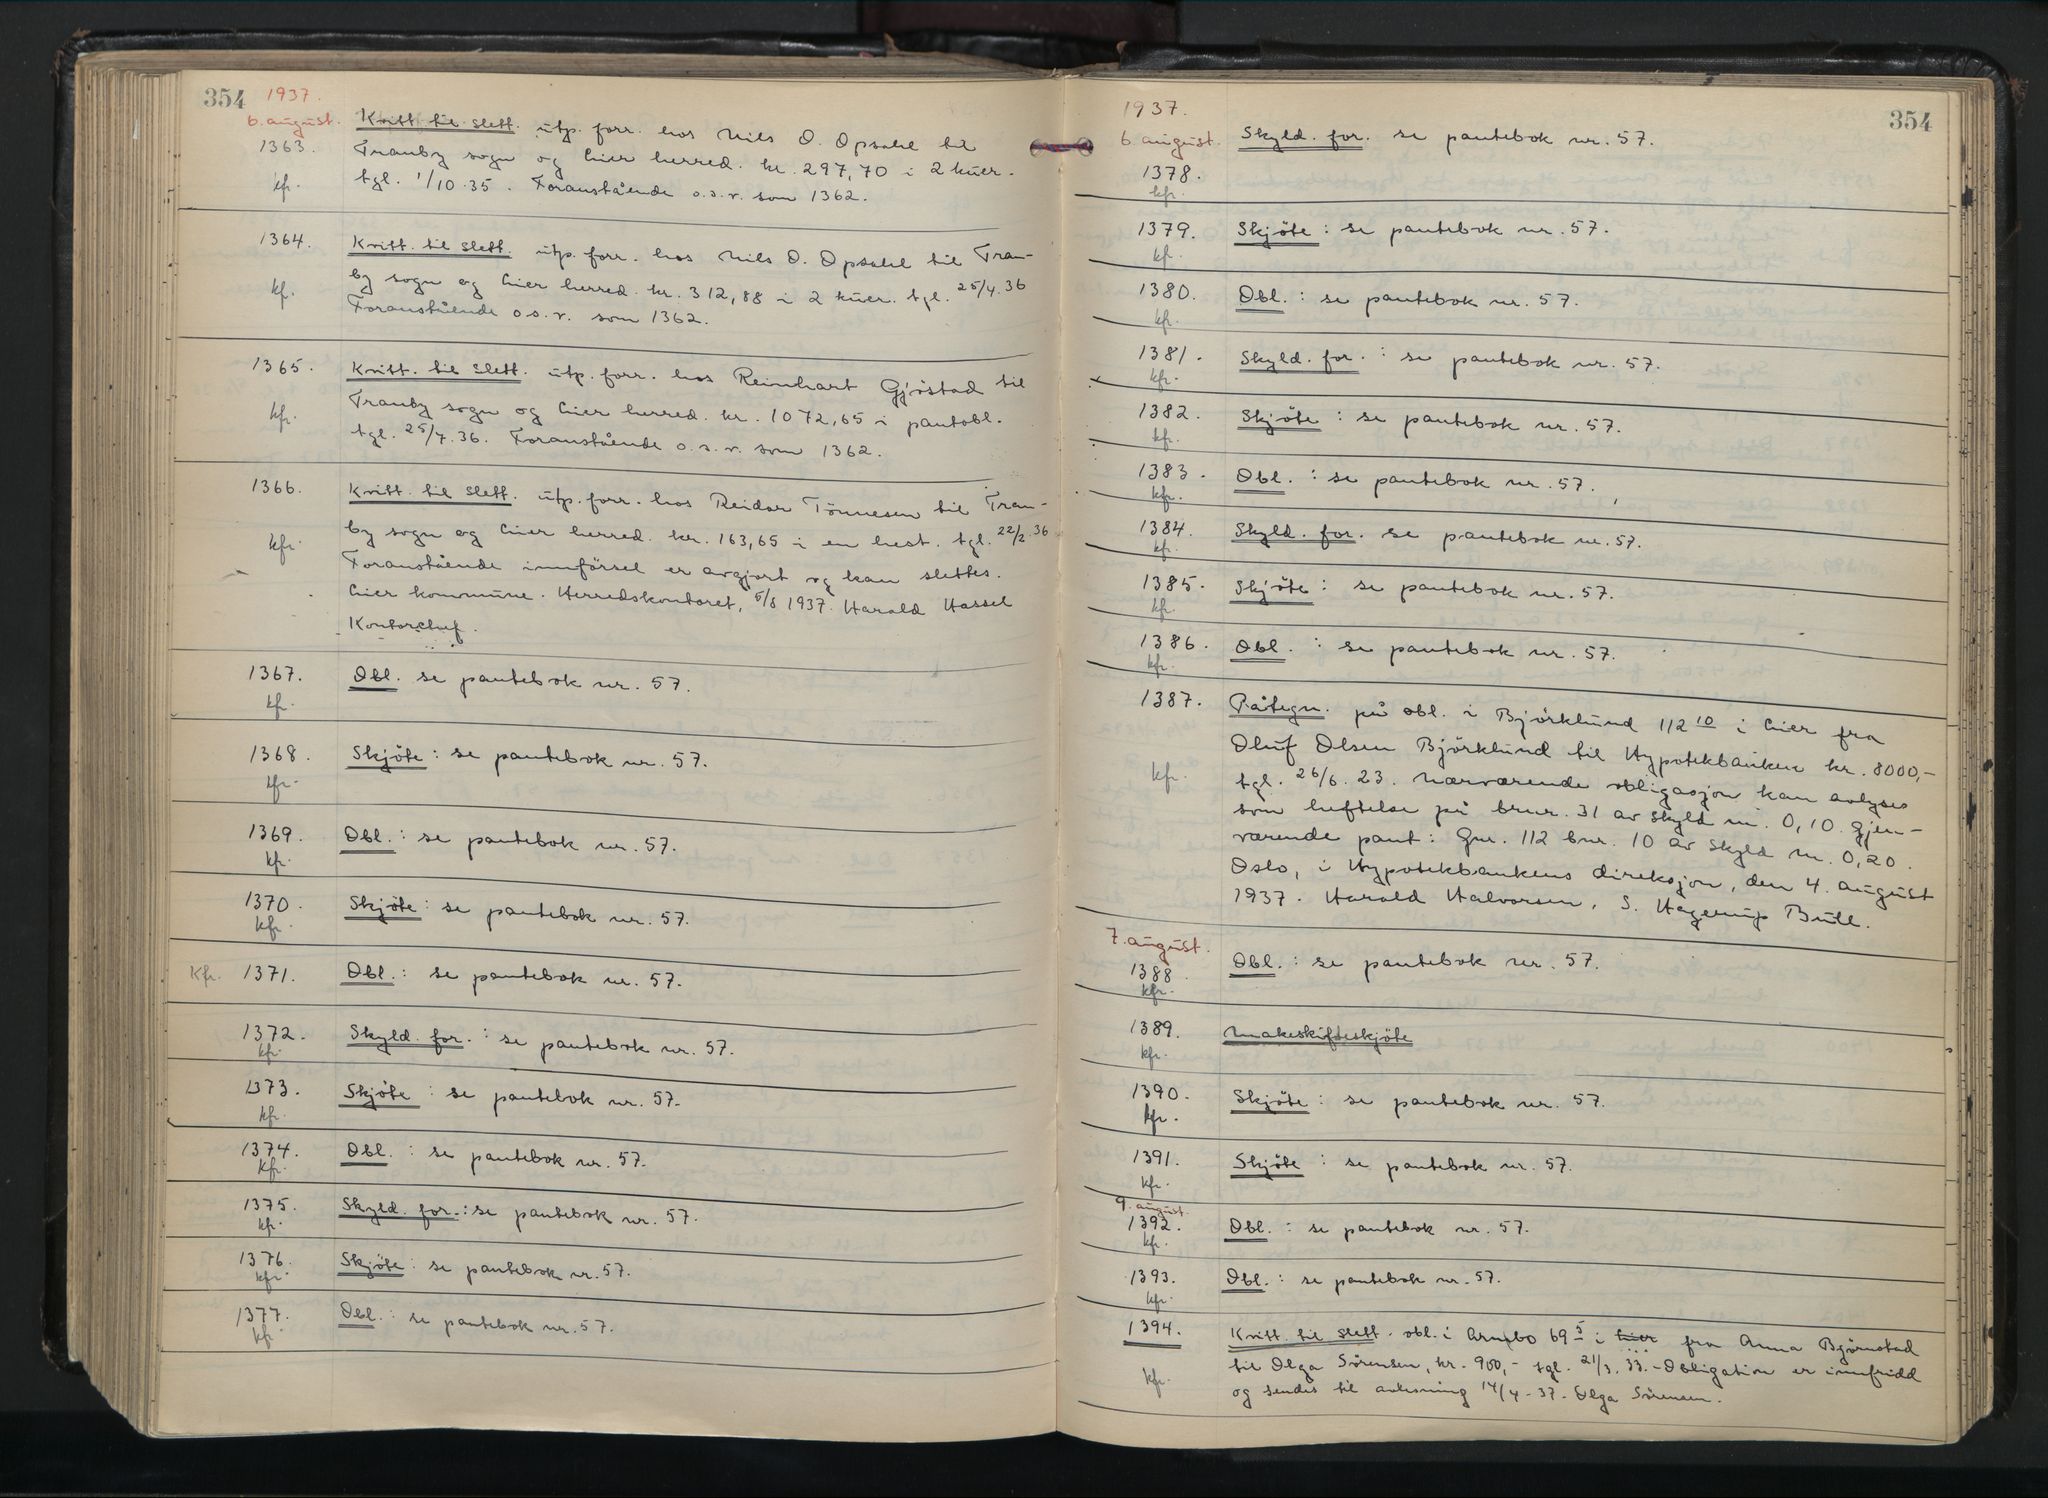 354 1937.
6. august.
1363.
kfr.
Kvitt. til slett. utp. forr. hos Nils O. Opsahl til
Tranby sogn og Lier herred. kr. 297,70 i 2 kuer.
tgl. 1/10.35. Foranstående o.s.v. som 1362.
1364.
kfr.
Kvitt. til slett. utp. forr. hos Nils O. Opsahl til Tran-
by sogn og Lier herred. kr. 312,88 i 2 kuer. tgl. 25/4.36
Foranstående o.s.v. som 1362.
1365.
kfr.
Kvitt. til slett. utp. forr. hos Reinhart Gjöstad til
Tranby sogn og Lier herred. kr. 1072,65 i pantobl.
tgl. 25/4.36. Foranstående o.s.v. som 1362.
1366.
kfr.
Kvitt. til slett. utp. forr. hos Reidar Tönnesen til Tran-
by sogn og Lier herred. kr. 163,65 i en hest. tgl. 22/2.36
Foranstående innförsel er avgjort og kan slettes.
Lier kommune. Herredskontoret, 5/8 1937. Harald Hassel
Kontorchef.
1367.
kfr.
Obl. se pantebok nr. 57.
1368.
kfr.
Skjöte: se pantebok nr. 57.
1369.
kfr.
Obl.: se pantebok nr. 57.
1370.
kfr.
Skjöte: se pantebok nr. 57.
Kfr. 1371. Obl.: se pantebok nr. 57.
1372.
kfr.
Skyld. for.: se pantebok nr. 57.
1373.
kfr.
Skjöte: se pantebok nr. 57.
1374.
Kfr.
Obl.: se pantebok nr. 57.
1375.
kfr.
Skyld. for.: se pantebok nr. 57.
1376.
kfr.
Skjöte: se pantebok nr. 57.
1377.
kfr.
Obl.: se pantebok nr. 57.
1937. 354
6. august.
1378.
kfr.
Skyld. for. se pantebok nr. 57.
1379.
kfr.
Skjöte: se pantebok nr. 57.
1380.
kfr.
Obl.: se pantebok nr. 57.
1381.
kfr.
Skyld. for.: se pantebok nr. 57.
1382.
kfr.
Skjöte: se pantebok nr. 57.
1383.
kfr.
Obl.: se pantebok nr. 57.
1384.
kfr.
Skyld. for. se pantebok nr. 57.
1385.
kfr.
Skjöte: se pantebok nr. 57.
1386.
kfr.
Obl.: se pantebok nr. 57.
1387.
kfr.
Påtegn. på obl. i Björklund 112 10 i Lier fra
Oluf Olsen Björklund til Hypotekbanken kr. 8000,-
tgl. 26/6.23. Nærværende obligasjon kan avlyses
som heftelse på brnr. 31 av skyld m. 0,10. Gjen-
værende pant: Gnr. 112 bnr. 10 av skyld m. 0,20.
Oslo, i Hypotekbankens direksjon, den 4. august
1937. Harald Halvorsen, S. Hagerup Bull.
7. august.
1388.
kfr.
Obl.: se pantebok nr. 57.
1389.
kfr.
Makeskifteskjöte
1390.
kfr.
Skjöte: se pantebok nr. 57.
1391.
kfr.
Skjöte: se pantebok nr. 57.
9. august.
1392.
kfr.
Obl.: se pantebok nr. 57.
1393.
kfr.
Obl.: se pantebok nr. 57.
1394.
kfr.
Kvitt. til slett. obl. i Arnebo 69 5 i Lier fra Anna Björnstad
til Olga Sörensen, kr. 900,- tgl. 21/3.33. - Obligation er innfridd
og sendes til avlesning 14/4-37. Olga Sörensen.